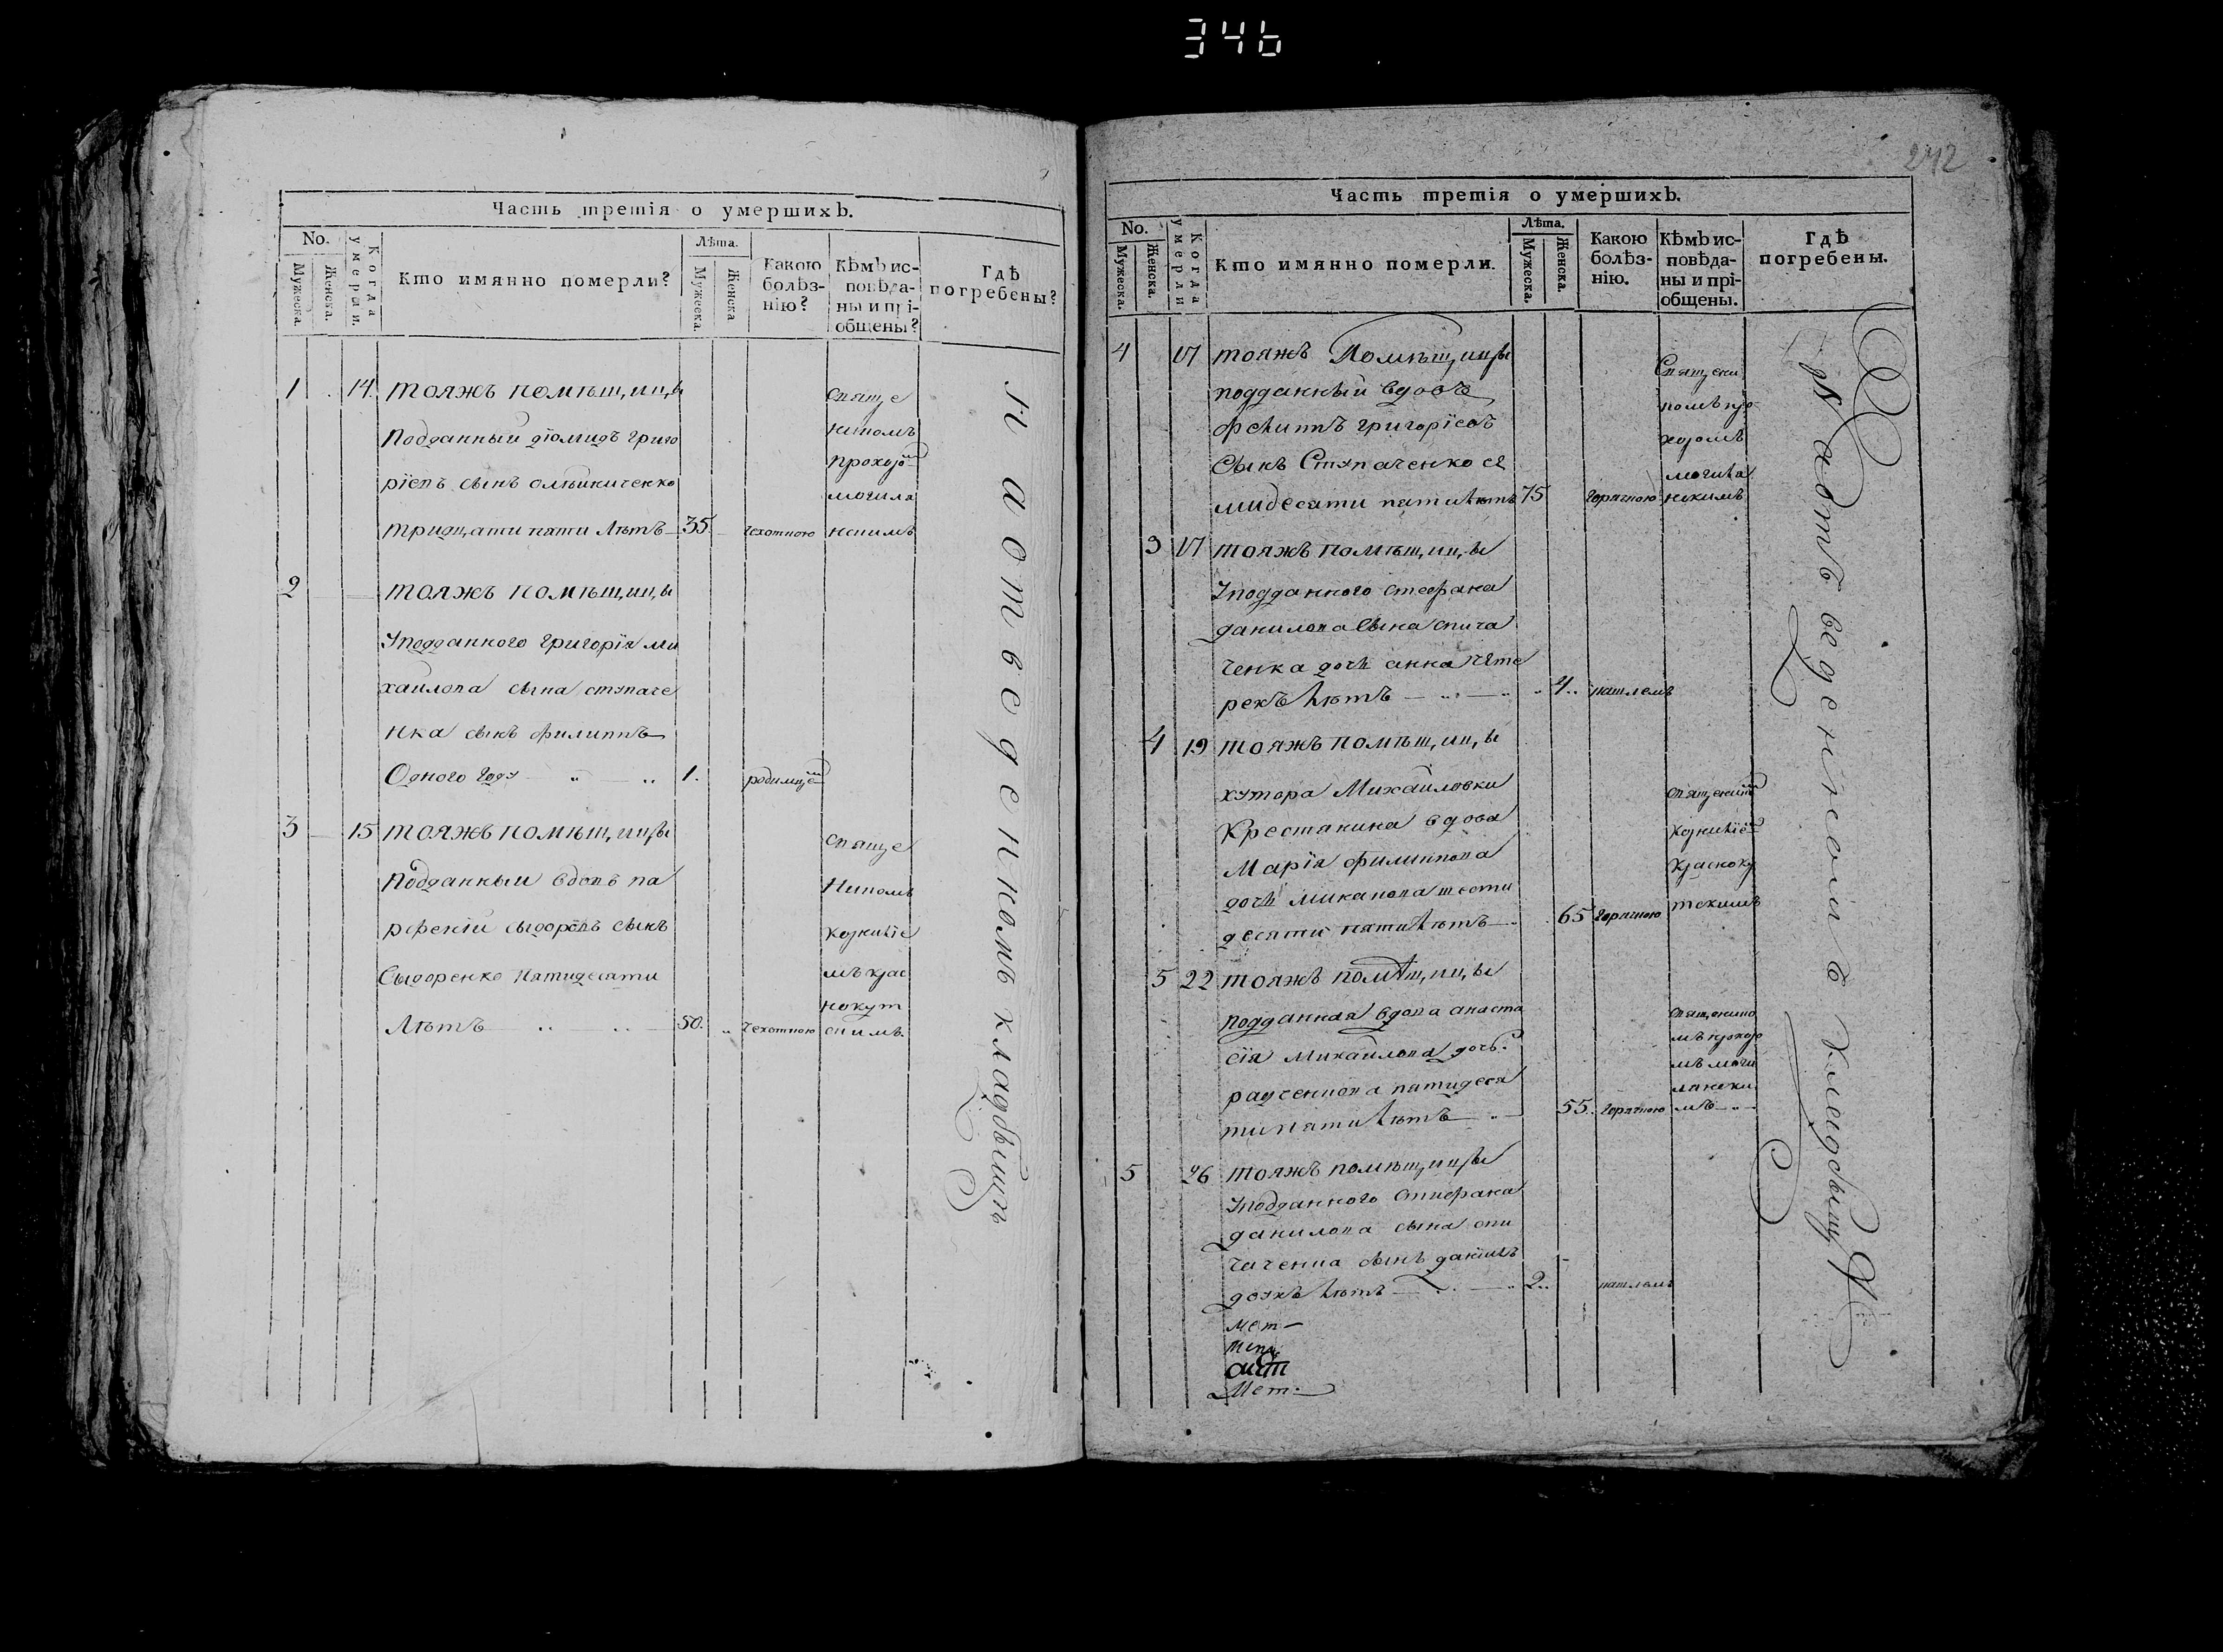 346
Часть третія о умершихъ.
No.
Мужеска.
Женска.
Когда умерли.
Кто имянно померли?
Лѣта.
Мужеска.
Женска
Какою болѣз-
нію?
Кѣмъ ис-
повѣда-
ны и прі-
общены?
Гдѣ
погребены?
1 14 тояжъ помѣщицы
Подданный діомидъ григо
ріевъ сынъ олѣйниченко
тридцати пяти лѣтъ 35 чехотною
священикомъ
прохоромъ
могилянскимъ
2 тояжъ помѣщицы
Уподданного григорія ми
хайлова сына ступаче
нка сынъ филиппъ
Одного году 1. родимцемъ
3 15 тояжъ помѣщицы
Подданный вдовъ па
рфеній сыдоровъ сынъ
Сыдоренко пятидесяти
Лѣтъ 50. чехотною
свяще
никомъ
мъ крас
нокут
скимъ.
на отведенномъ кладбищѣ
242
Часть третія о умершихъ.
No.
Мужеска.
Женска.
Когда умерли
Кто имянно померли.
Лѣта.
Мужеска.
Женска.
Какою
болѣз-
нію.
Кѣмъ ис-
повѣда-
ны и прі-
общены.
Гдѣ
погребены.
4 17 тояжъ Помѣщицы
подданный вдовъ
григоріевъ
Сынъ Ступаченко се
мидесяти пяти лѣтъ 75 горячною
Священи
комъ про
хоромъ
могиля
нскимъ
3 17 тояжъ помѣщицы
Уподданного стефана
данилова сына спича
ченка дочь анна чете
рехъ лѣтъ 4 кашлемъ
4 19 тояжъ помѣщицы
хутора Михайловки
Крестянина вдова
Марія филиппова
дочь шести
десяти пяти лѣтъ 65 горячною
священикомъ
красноку
тскимъ
5 22 тояжъ помѣщицы
подданная вдова анаста
сія Михайлова дочь
радченкова пятидеся
ти пяти лѣтъ 55. горячною
священико
мъ прохоро
мъ моги
лянски
мъ
5 26 тояжъ помѣщицы
Уподданного Стефана
данилова сына спи
чаченка сынъ даніилъ
двухъ лѣтъ 2 кашлемъ
На отведенномъ кладбищѣ